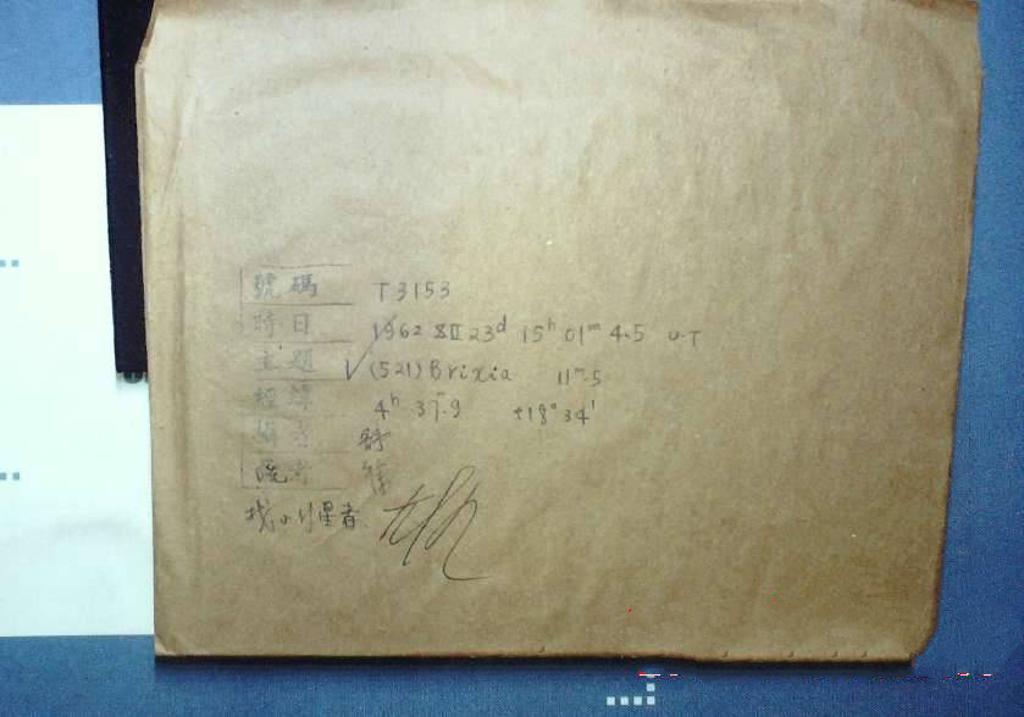 號碼 T3153
時日 1962 XII 23d 15h 01m 4.5 U.T
主題 √(521) Brixia 11m.5
經緯 4h 37.9 +18° 34'
攝者
誌者
找小行星者